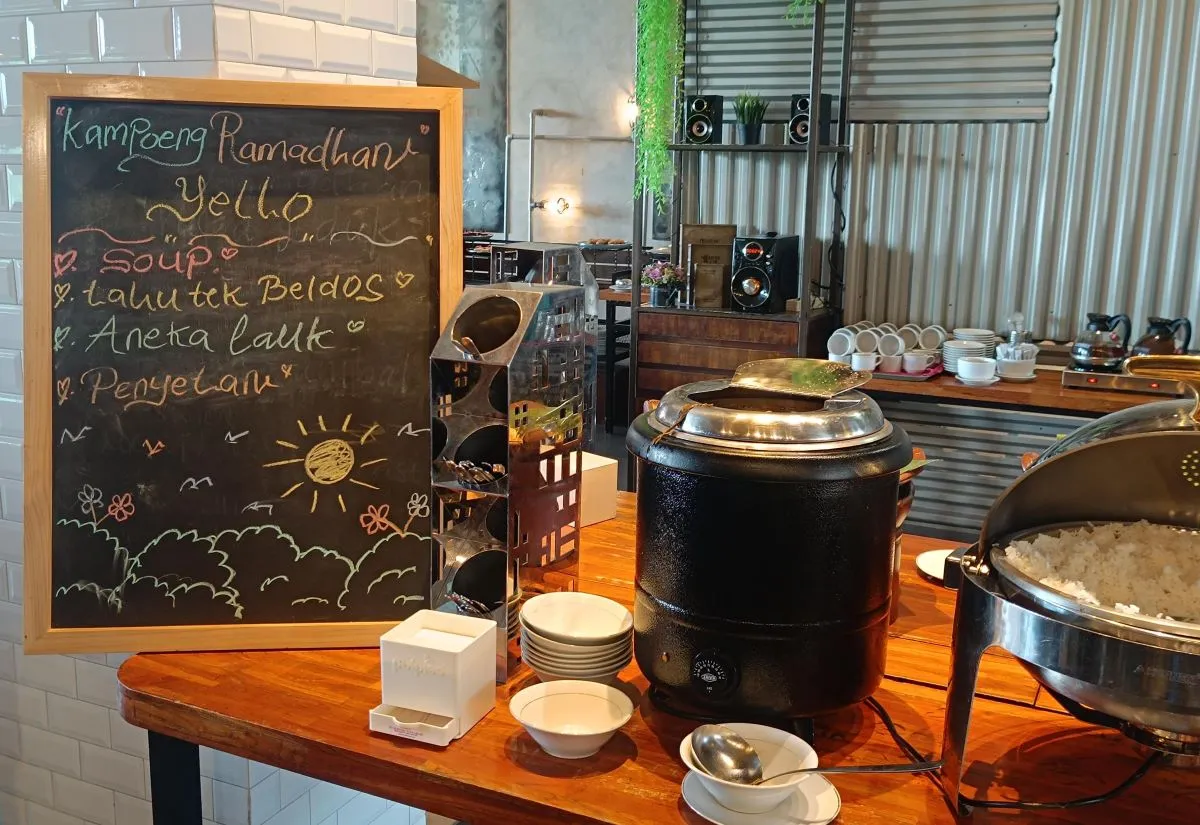 "Kampoeng Ramadhan"
Yello
Soup
tahu tek Beldos
Aneka lauk
Penyetan